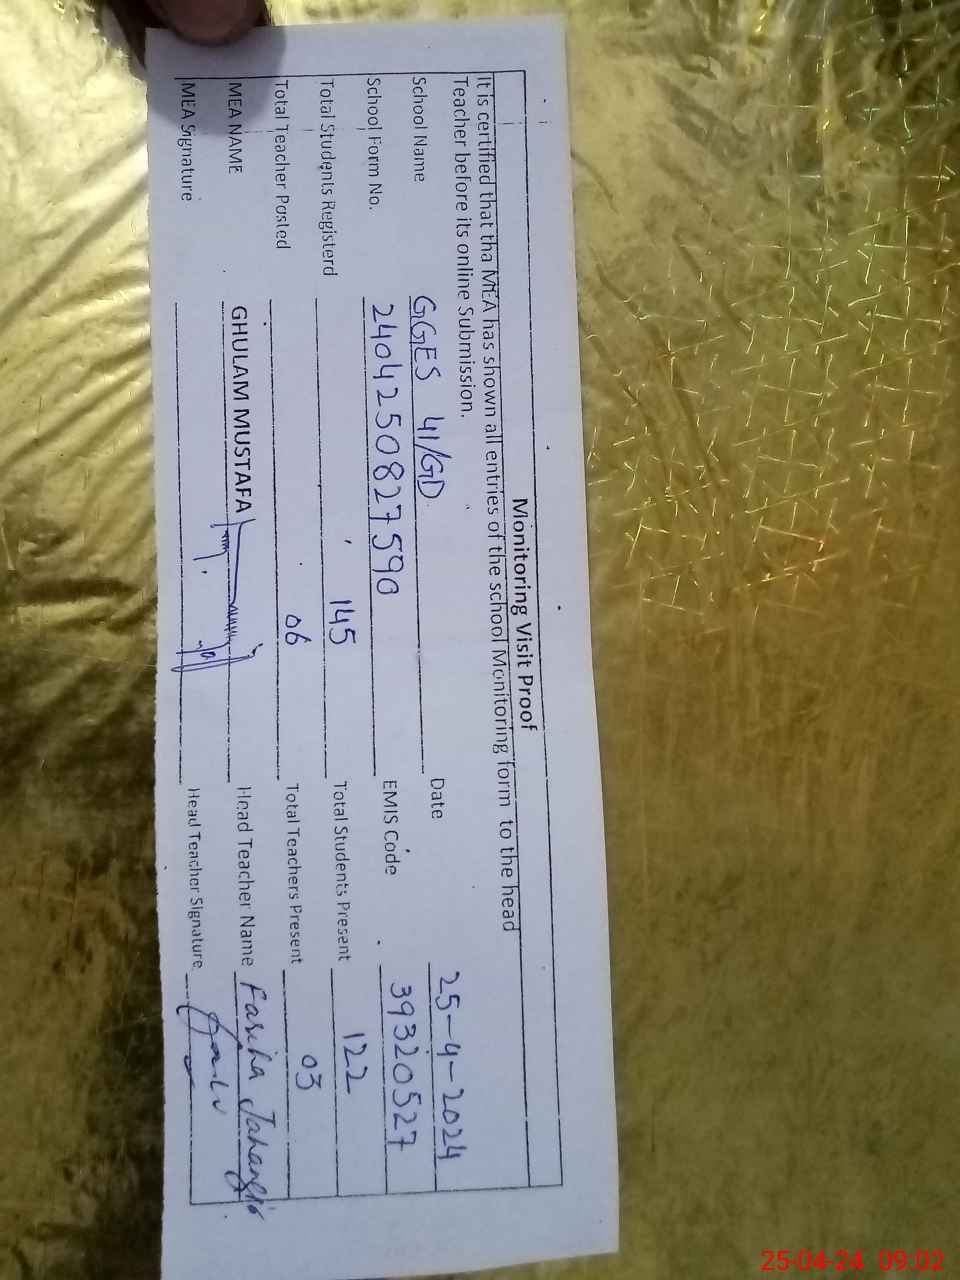 Monitoring Visit Proof
It is certified that tha MEA has shown all entries of the school Monitoring form to the head
Teacher before its online Submission.
School Name GGES 41/GD Date 25-4-2024
School Form No. 2404250827590 EMIS Code 39320527
Total Students Registerd 145 Total Students Present 122
Total Teacher Posted 06 Total Teachers Present 03
MEA NAME GHULAM MUSTAFA Head Teacher Name Fariha Jahangir
MEA Signature Head Teacher Signature
25-04-24 09:02